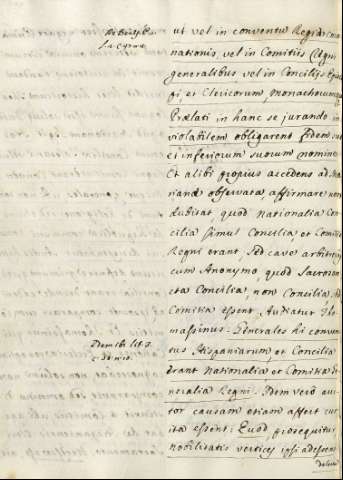 ut vel in conventu Regiæ coro
nationis, vel in Comitiis Regni
generalibus vel in Concilijs Episco
pi, et Clericorum, Monachorumque
Prælati in hanc se jurando in
violabilem obligarent fidem suo
et inferiorum suorum nomine
Et alibi propius accedens ad
observata, affirmare non
dubitat, quod Nationalia Con
cilia simul Concilia, et Comitia
Regni erant, sed cave arbitreris
cum Anonymo, quod Sacrosan
cta Concilia, non Concilia, sed
Comitia essent, Audiatur Tho
massinus: Generales hi conven
tus Hispaniarum, et Concilia
erant Nationalia et Comitia Ge
neralia Regni. Idem verò au
tor causam etiam affert cur
ita essent: Quod, prosequitur
nobilitatis vertices ipsi adessent
Idem ibi lit. 3.